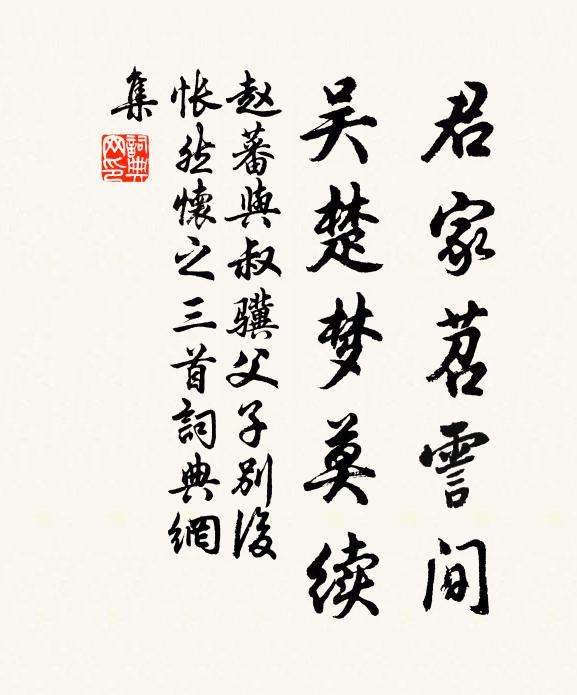 君家苕霅间
吴楚梦莫续
赵蕃与叔骥父子别后
怅然怀之三首词典网
集
詞典網印